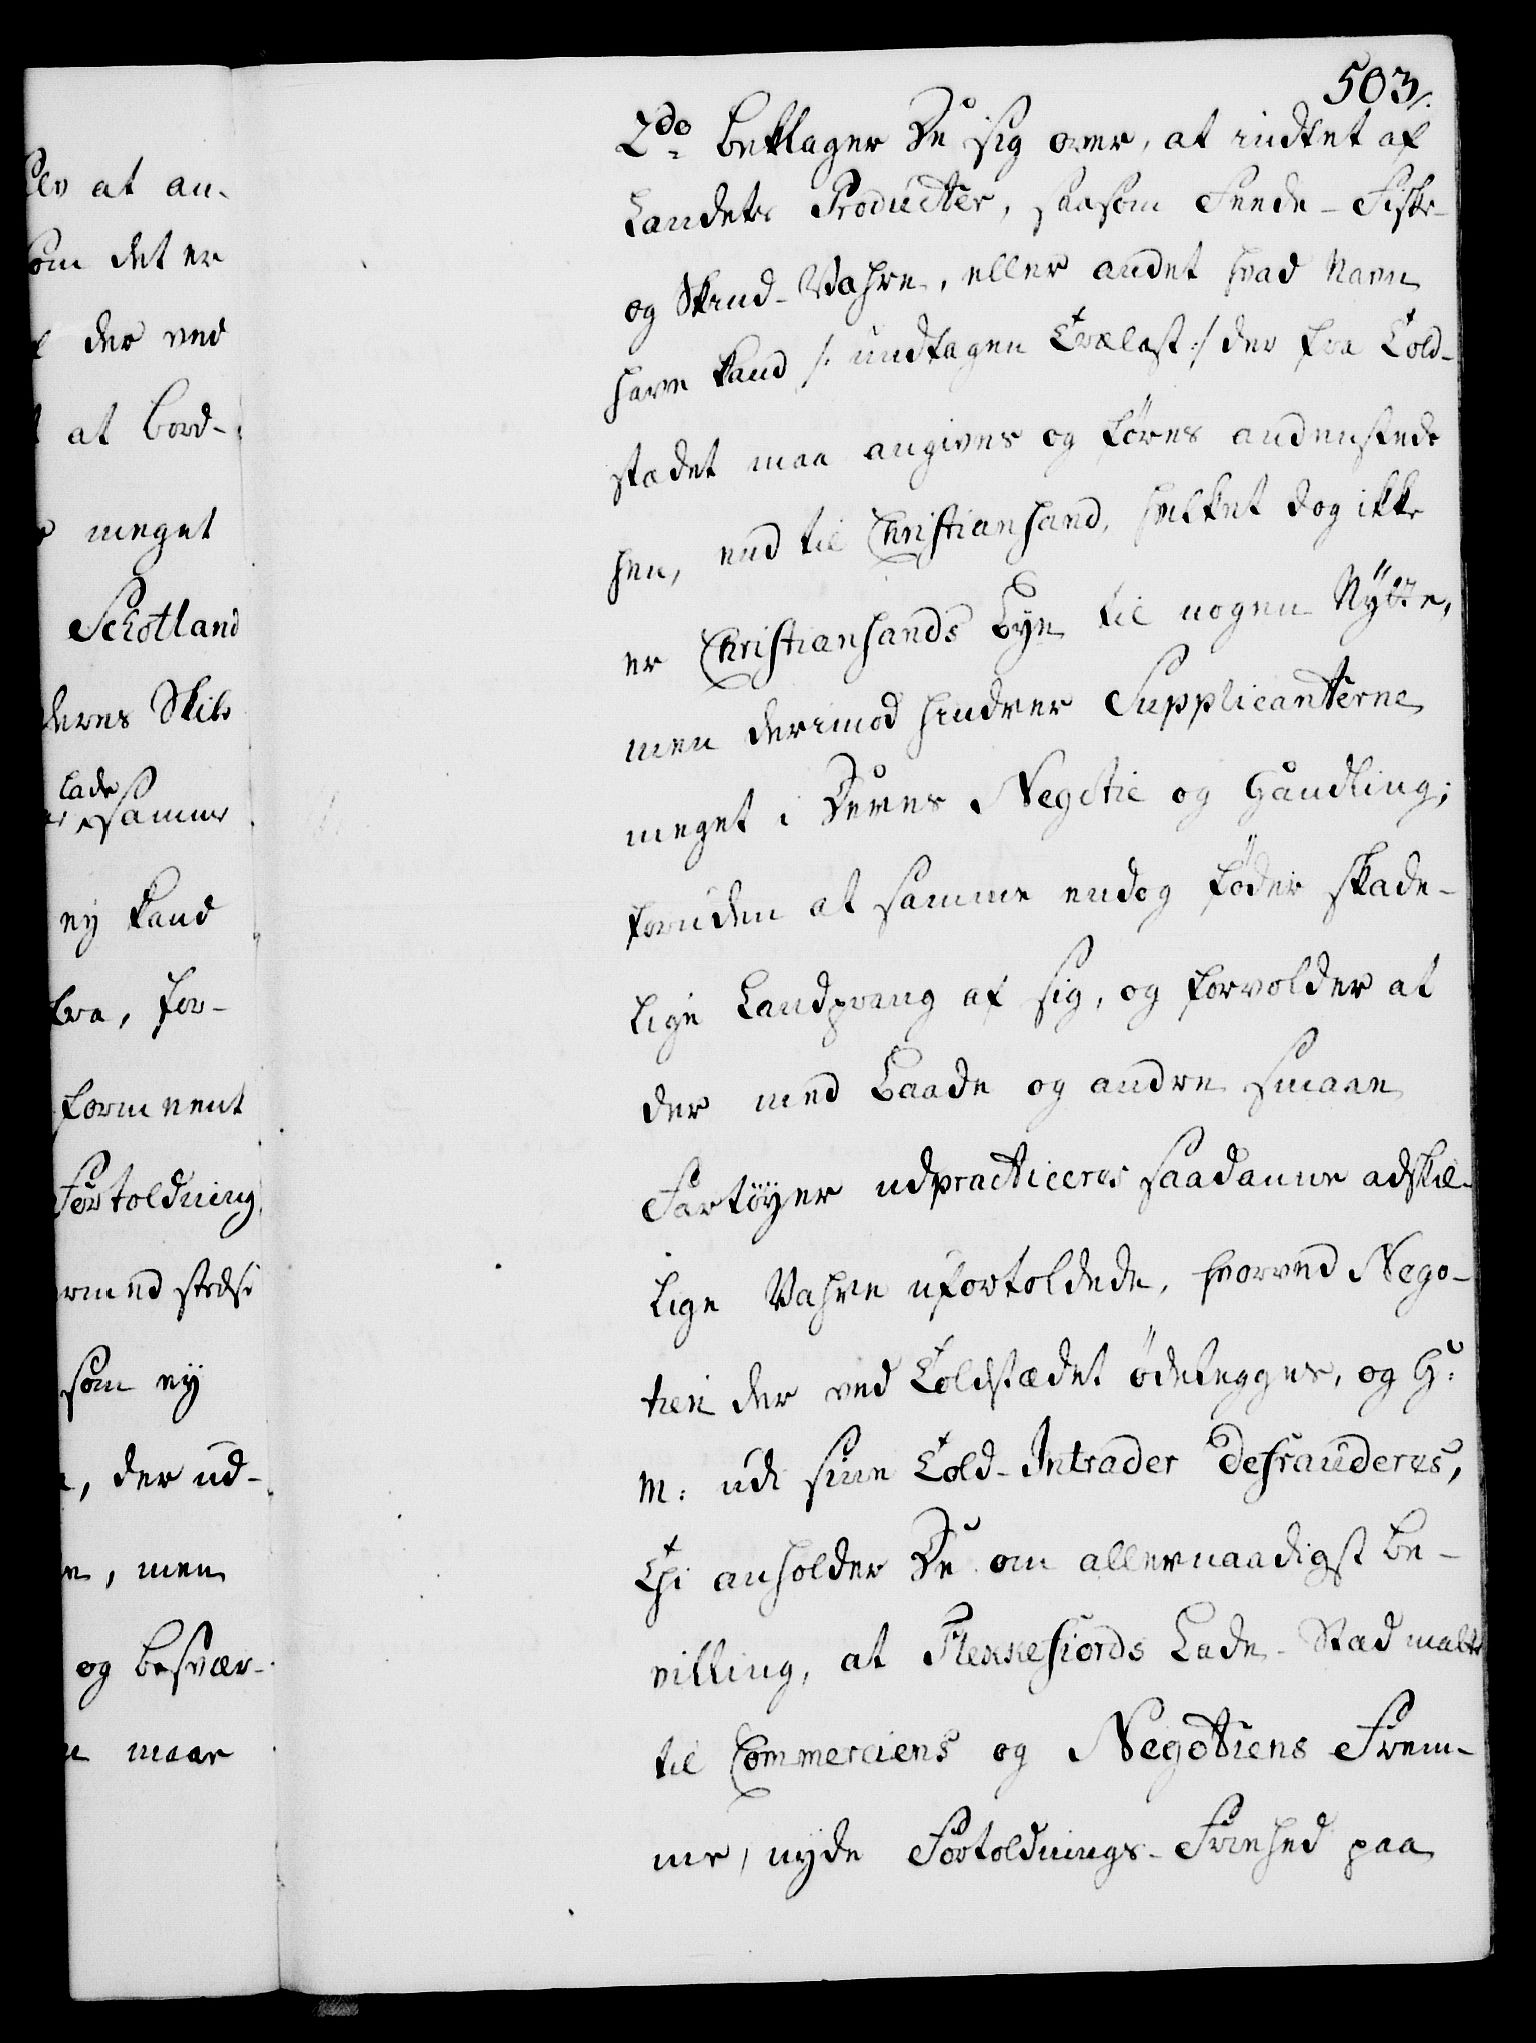 503/.
2do beklager De sig over, at indtet af
Landets Producter, saasom Feede- Fiske-
og Skind-Vahre, eller andet hvad Navn
have kand /: undtagen Trælast :/ der fra Told-
stædet maa angives og føres andensteds
hen, end til Christiansand, hvilket dog ikke
er Christiansands Bye til nogen Nÿtte,
men derimod hindrer Supplicanterne
meget i Deres Negotie og Handling;
foruden at samme endog føder skade-
lige Landprang af sig, og forvolder at
der med Baade og andre smaae
Fartöÿer udpracticeres saadanne adskil-
lige Vahre ufortoldede, hvorved Nego-
tien der ved Toldstædet ödelegges, og H:
M: udi sine Told-Intrader defrauderes,
Thi anholder De om allernaadigst be-
villing, at Flekkefiords Lade-Stad matte
til Commerciens og Negotiens Frem-
me, nyde Fortoldnings-Friehed paa
at an-
om det er
der ved
at bord-
meget
Schotland
deres Skibs
lade
samme
ey kand
fra, for-
forment
Fortoldning
stedse
som eÿ
, der ud-
, men
og besvær-
maae